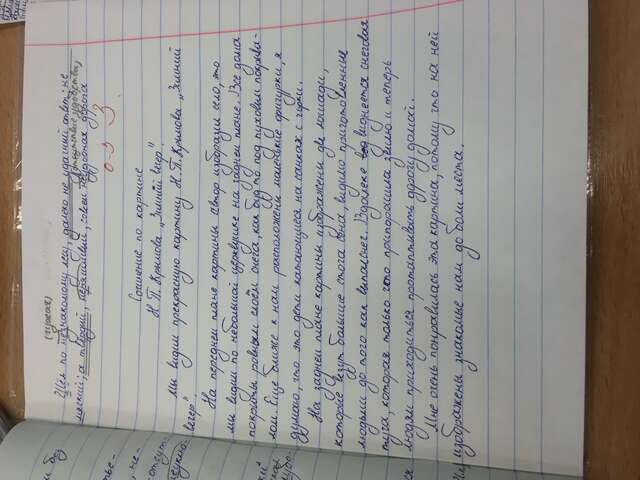 (чужая)
Шёл по незнакомому лесу, далеко не удачный ответ; не
(отсутствие удобства)
мягкий; а твёрдый, неряшливый, совсем неудобная дорога
0-3 3
Сочинение по картине
Н.П.Крымова „Зимний вечер".
Мы видим прекрасную картину Н.П.Крымова „Зимний
вечер".
На передней плане картины автор изобразил село, это
мы видим по небольшой церквушке на задней плане. Все дома
покрыты ровным слоем снега, как буд то под пуховым покрыва-
лом. Еще ближе к нам расположены маленькие фигурки, я
думаю, что это дети катающиеся на санках с горки.
На задней плане картины изображены две лошади,
которые везут большие стога сена, видимо приготовленные
людьми до того как выпал снег. Вдалеке виднеется снеговая
туча, которая только что припорошила землю и теперь
людям приходиться протаптывать дорогу домой.
Мне очень понравилась эта картина, потому что на ней
изображены знакомые нам до боли места.